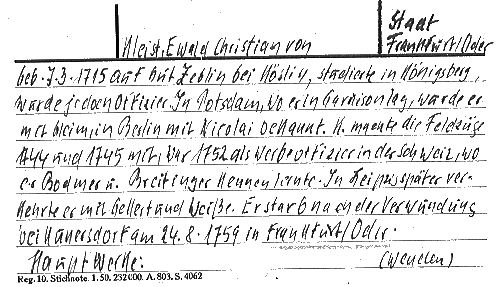 Staat
Kleist, Ewald Christian von
Frankfurt/Oder
geb. 7.3.1715 auf Gut Zeblin bei Köslin, studierte in Königsberg,
wurde jedoch Offizier. In Potsdam, wo er in Garnison lag, wurde er
mit Gleim, in Berlin mit Nicolai bekannt. K. machte die Feldzüge
1744 und 1745 mit, war 1752 als Werbeoffizier in der Schweiz, wo
er Bodmer u. Breitinger kennen lernte. In Leipzig später ver-
kehrte er mit Gellert und Weiße. Er starb nach der Verwundung
bei Kunersdorf am 24.8.1759 in Frankfurt/Oder.
Hauptwerke: (Wenden)
Reg. 10. Stichnote. 1. 50. 232000. A. 803. S. 4062